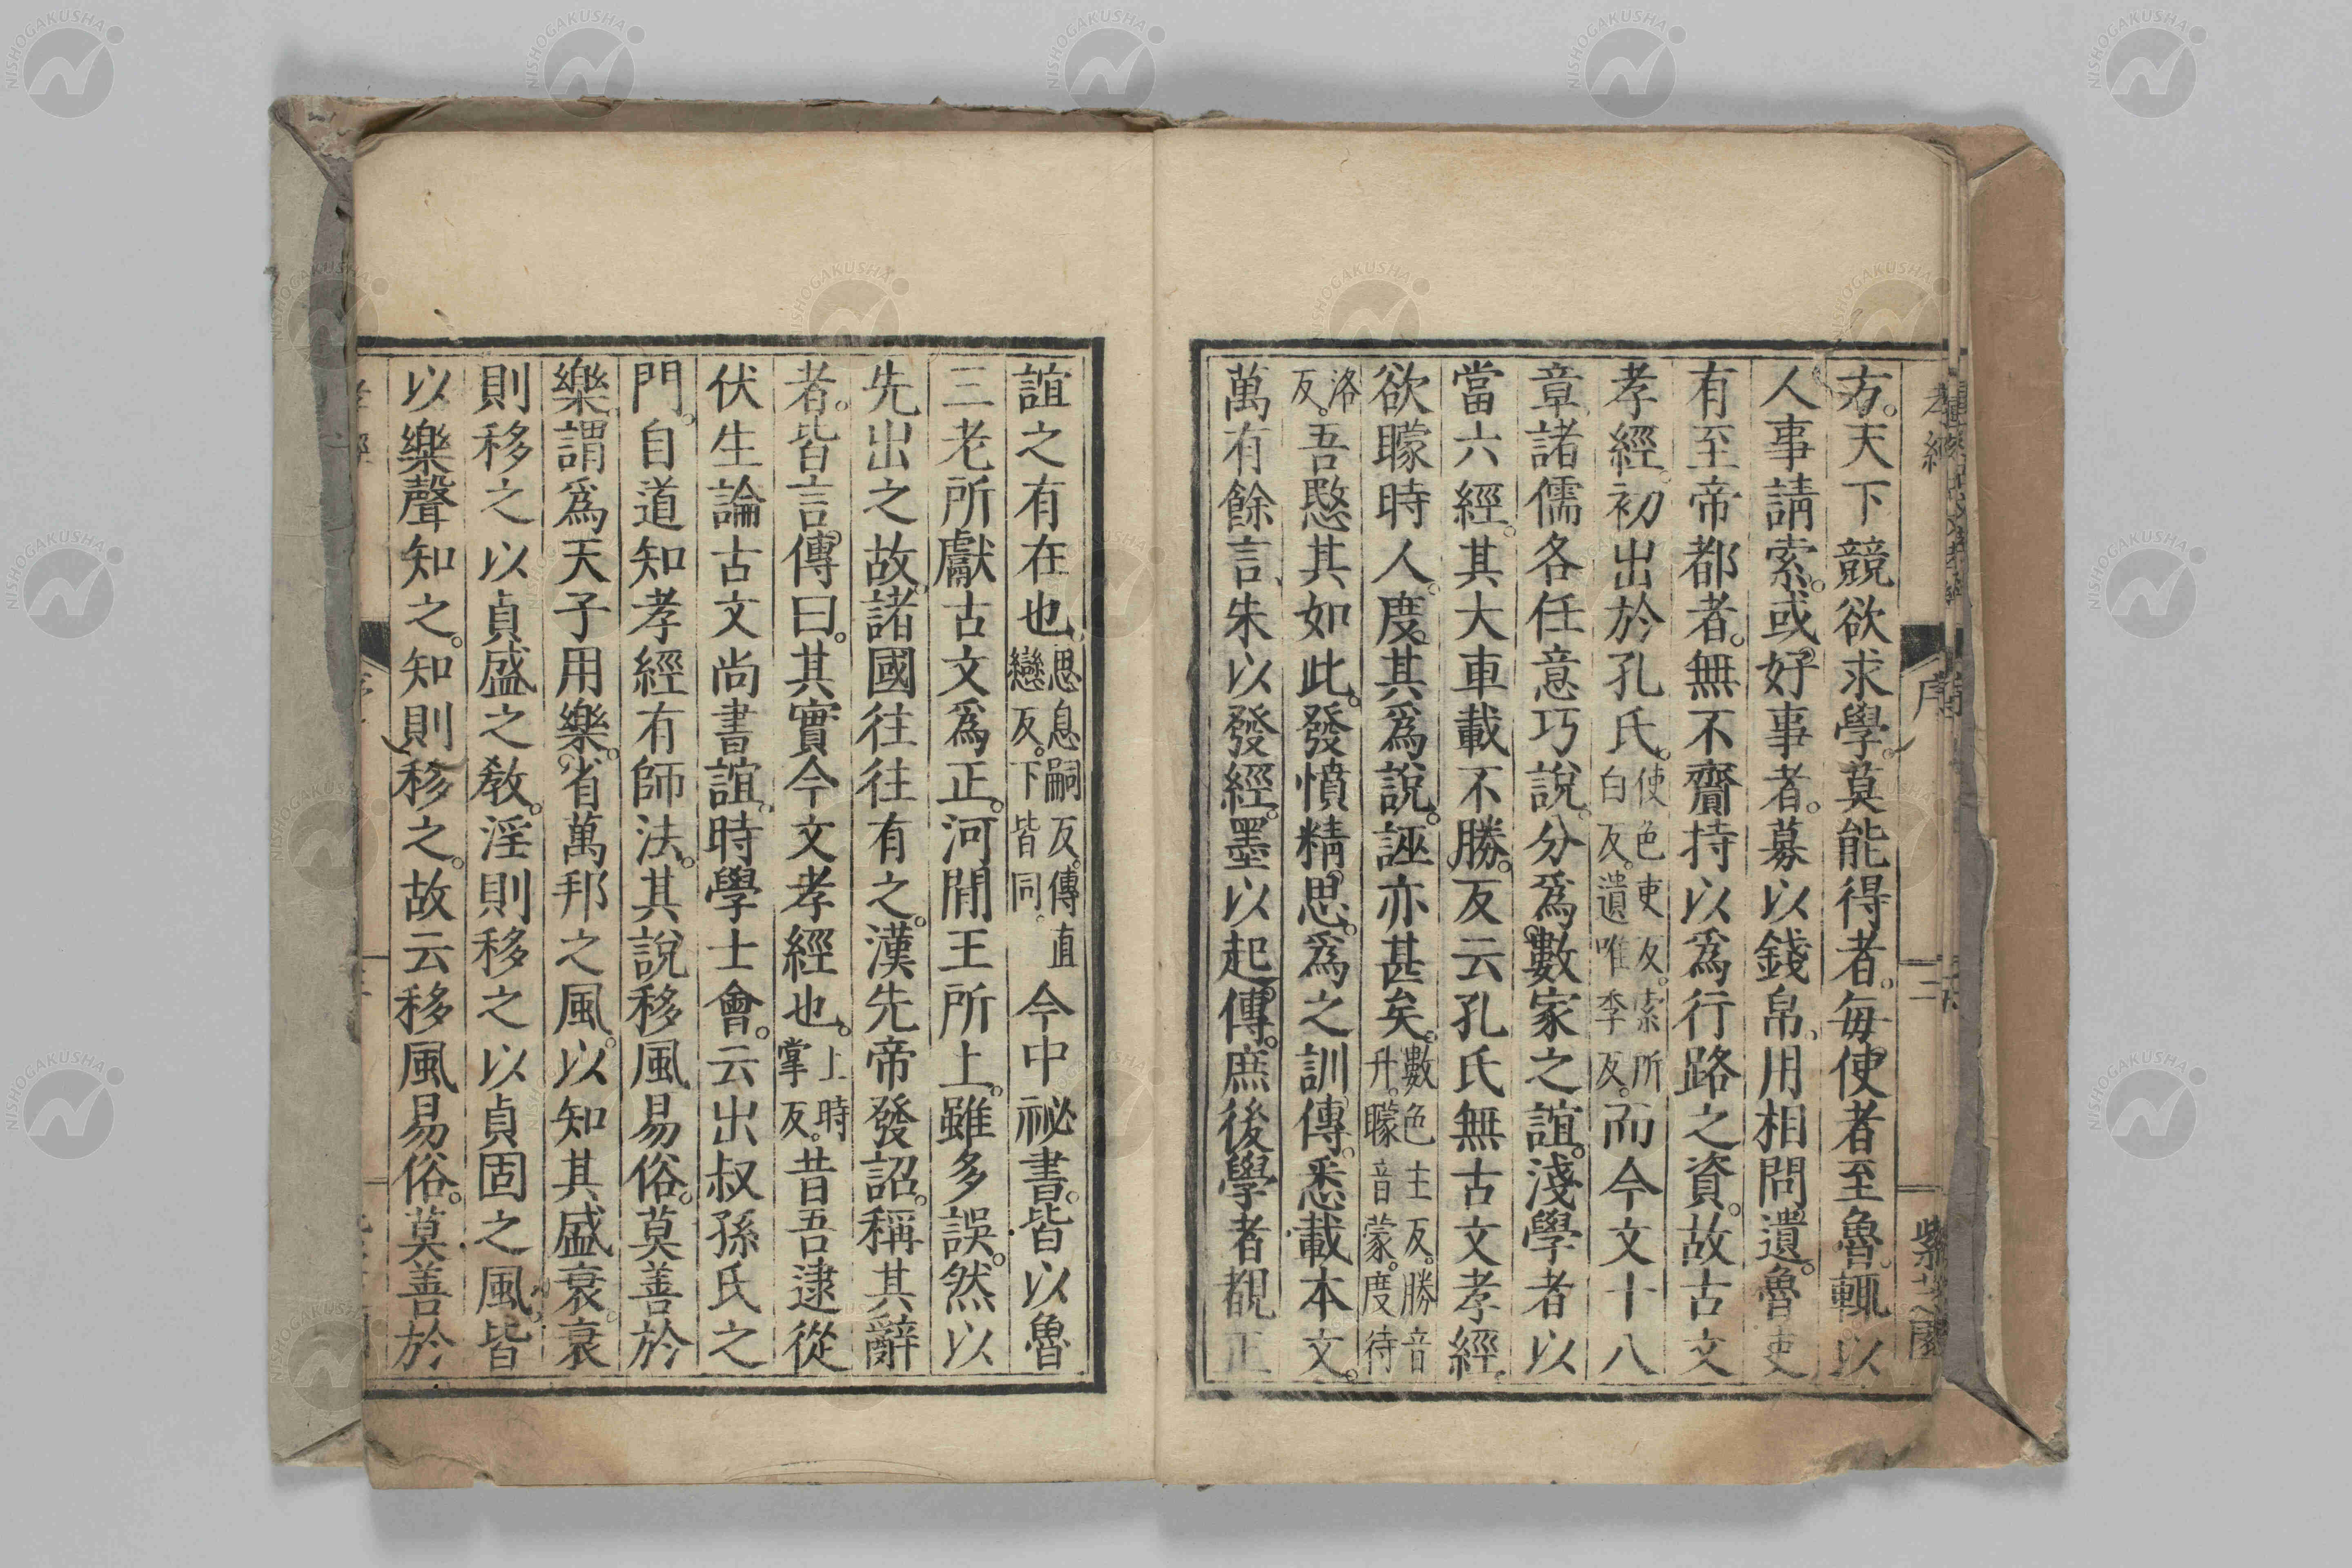 方。天下競欲求學。莫能得者。每使者至魯。輒以
人事請索。或好事者。募以錢帛。用相問遺。魯吏
有至帝都者。無不齎持以爲行路之資。故古文
孝經。初出於孔氏。使色吏反。索所白反。遺唯季反。而今文十八
章、諸儒各任意巧說。分爲數家之誼。淺學者以
當六經。其大車載不勝。反云孔氏無古文孝經。
欲矇時人。度其爲說。誣亦甚矣。數色主反。勝音升。矇音蒙。度待
洛反。吾愍其如此。發憤精思。爲之訓傳。悉載本文。
萬有餘言、朱以發經。墨以起傳。庶後學者覩正
誼之有在也、思息嗣反。傳直戀反。下皆同。今中祕書。皆以魯
三老所獻古文爲正。河閒王所上。雖多誤。然以
先出之故、諸國往往有之。漢先帝發詔。稱其辭
者。皆言傳曰。其實今文孝經也。上時掌反。昔吾逮從
伏生論古文尚書誼。時學士會。云出叔孫氏之
門。自道知孝經有師法。其說移風易俗。莫善於
樂、謂爲天子用樂。省萬邦之風。以知其盛衰。衰
則移之以貞盛之敎。淫則移之以貞固之風。皆
以樂聲知之。知則移之。故云移風易俗。莫善於
孝經
序
二
紫芝園
NISHOGAKUSHA